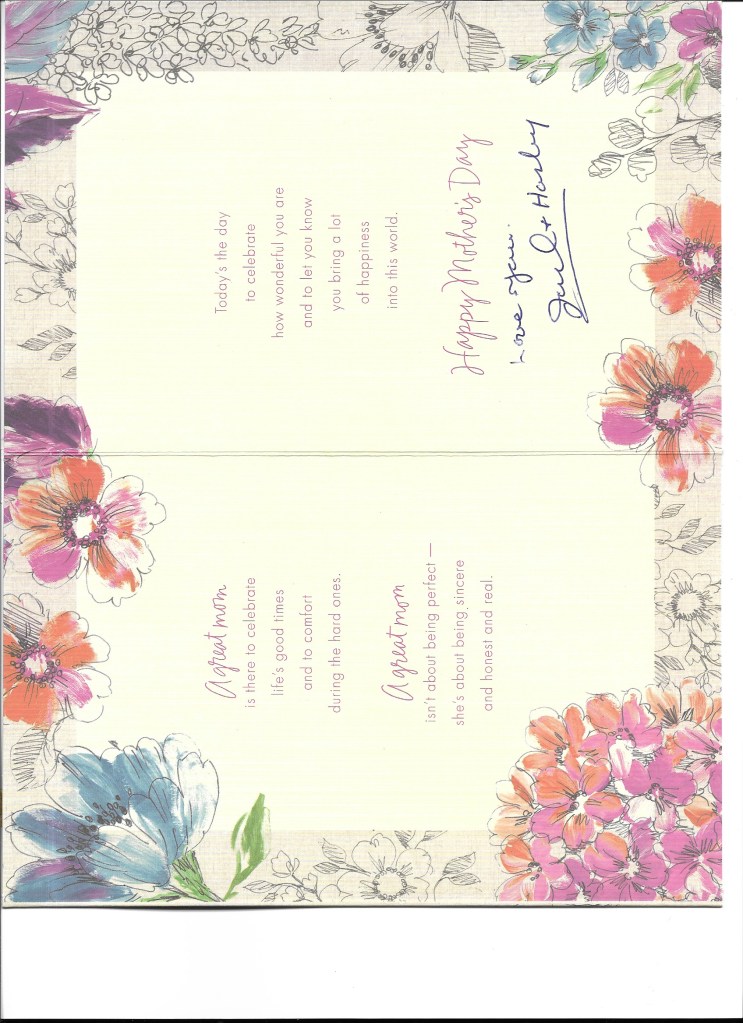 A great mom
is there to celebrate
life's good times
and to comfort
during the hard ones.
A great mom
isn't about being perfect —
she's about being sincere
and honest and real.
Today's the day
to celebrate
how wonderful you are
and to let you know
you bring a lot
of happiness
into this world.
Happy Mother's Day
Love you.
+ Harley